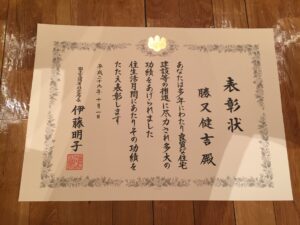 表彰状
勝又健吉殿
あなたは多年にわたり良質な住宅
建設等の推進に尽力され多大の
功績をあげられました
住生活月間にあたりその功績を
たたえ表彰します
平成二十九年十月一日
伊藤明子